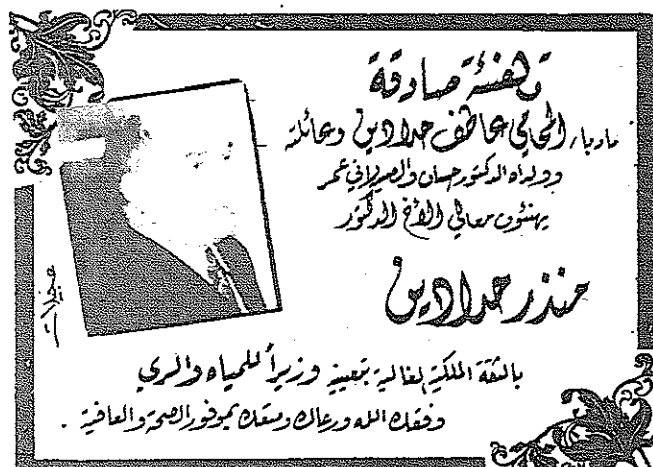 تهنئة صادقة
مادبا، المحامي عاطف حدادين وعائلته
وولداه الدكتور حسان والصيدلاني عمر
يهنئون معالي الأخ الدكتور
منذر حدادين
بالثقة الملكية الغالية بتعيينه وزيراً للمياه والري
وفقك الله ورعاك ومتعك بموفور الصحة والعافية .